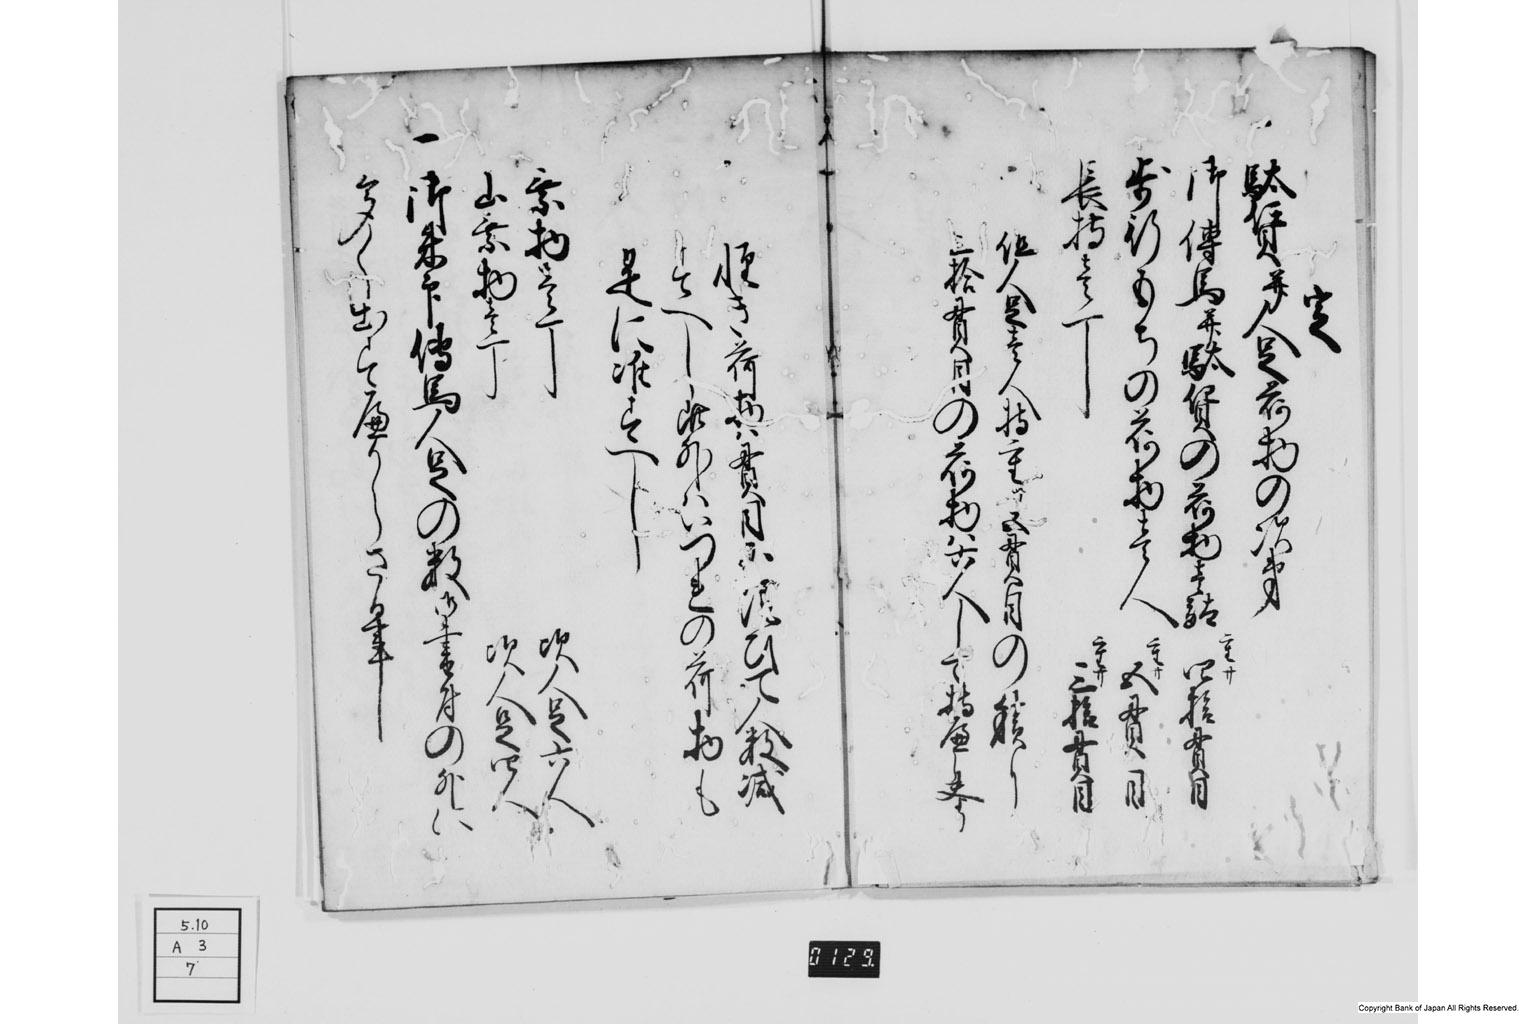 定
駄賃并人足荷物の次第
御傳馬并駄賃の荷物壱駄
重サ
四拾貫目
歩行もちの荷物壱人
重サ
五貫目
長持壱丁
重サ
三拾貫目
但人足壱人持重サ五貫目の積り
三拾貫目の荷物ハ六人して持へし夫より
軽き荷物ハ貫目に随ひて人数減
すへし此外ハいつれの荷物も
是に准すへし
乗物壱丁
次人足六人
山乗物壱丁
次人足四人
一
御朱印傳馬人足の数御書付の外に
多く出すへからさる事
5.10
A 3
7
0129
Copyright Bank of Japan All Rights Reserved.